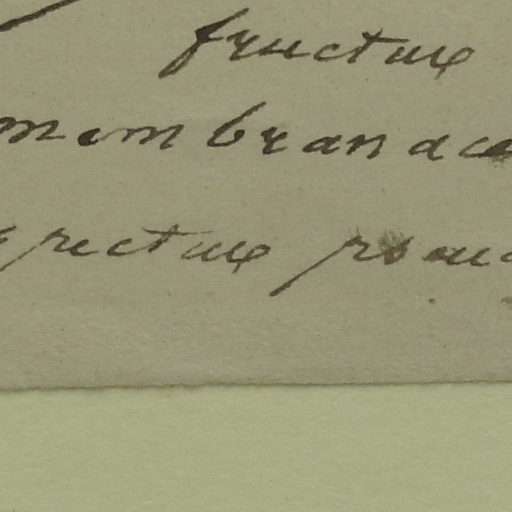 fructus
membranace
fructus pseud